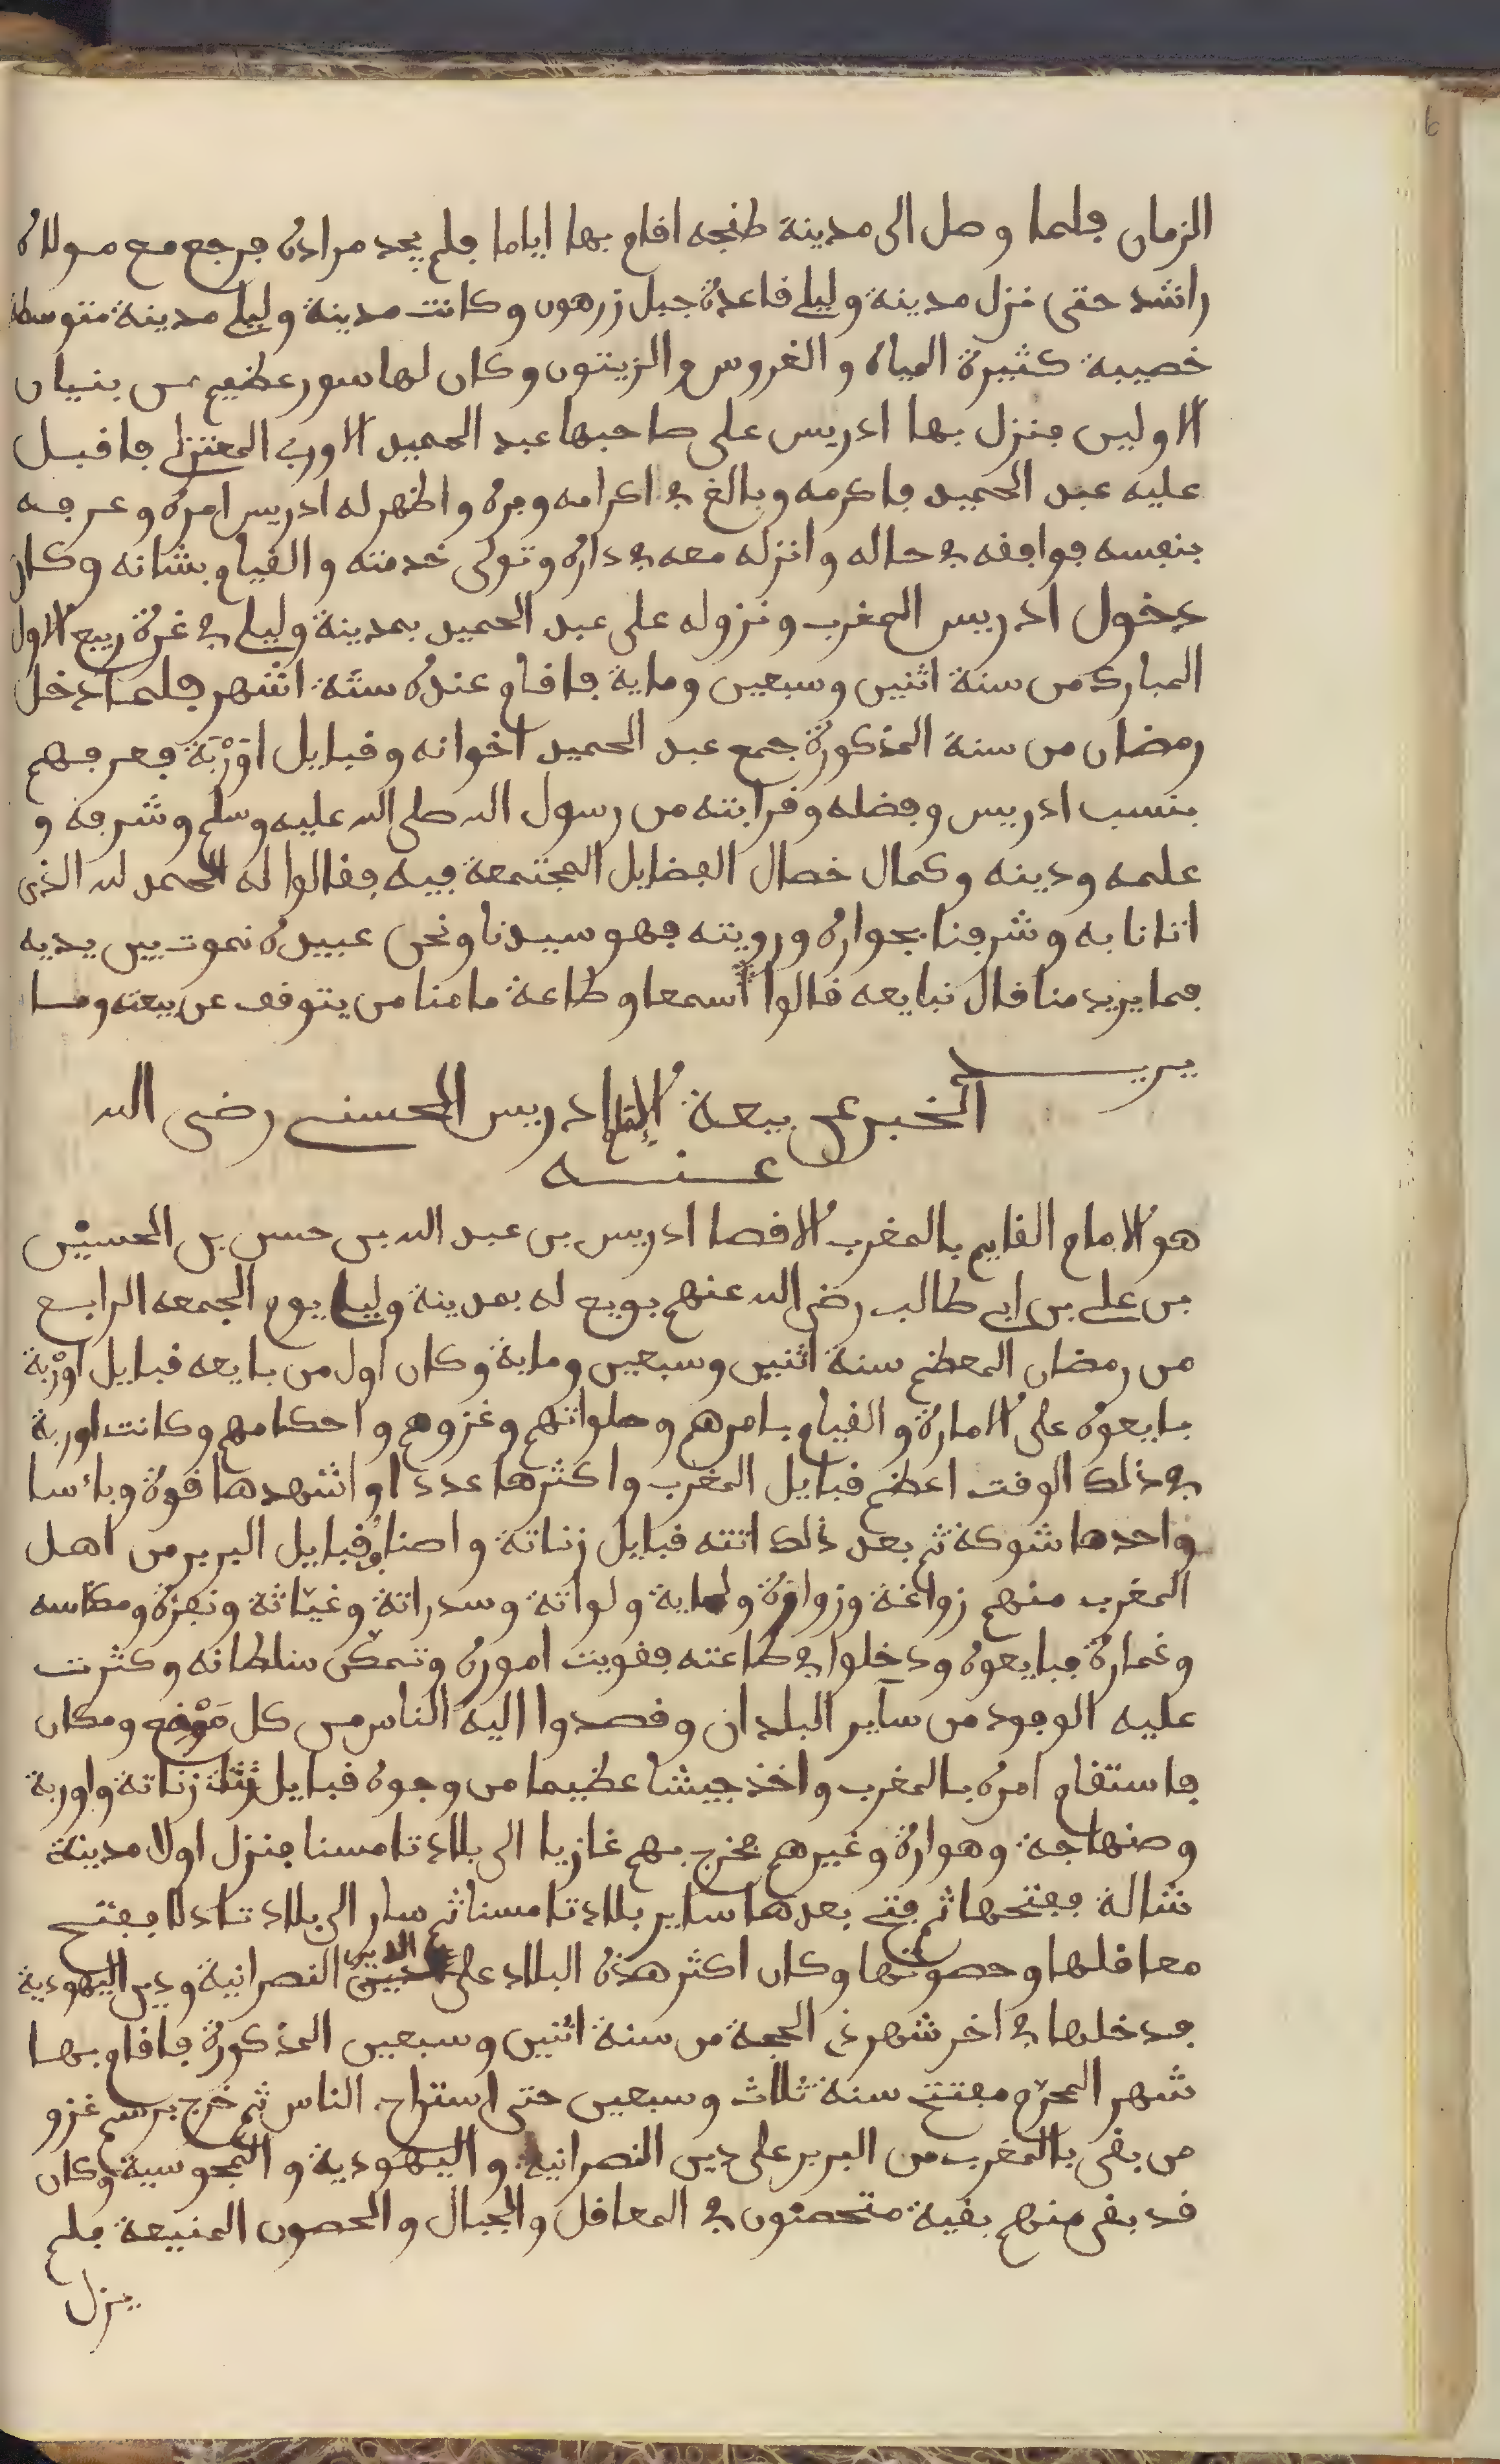 الزمان فلما وصل الى مدينة طنجه اقام بها اياما فلم يجد مراده فرجع مع مولاه
راشد حتى نزل مدينة وليلى قاعدة جبل زرهون وكانت مدينة وليلى مدينة متوسطة
خصيبة كثيرة المياه والغروس والزيتون وكان لها سور عظيم من بنيان
الاولين فنزل بها ادريس على صاحبها عبد الحميد الاوربي المعتزلي فاقبل
عليه عبد الحميد فاكرمه وبالغ في اكرامه وبره واظهر له ادريس امره وعرفه
بنفسه فوافقه في حاله وانزله معه في داره وتولى خدمته والقيام بشانه وكان
دخول ادريس المغرب ونزوله على عبد الحميد بمدينة وليلى في غرة ربيع الاول
المبارك من سنة اثنين وسبعين وماية فاقام عنده ستة اشهر فلما دخل
رمضان من سنة المذكورة جمع عبد الحميد اخوانه وقبايل اوَرْبَة فعرفهم
بنسب ادريس وفضله وقرابته من رسول الله صلى الله عليه وسلم وشرفه و
علمه ودينه وكمال خصال الفضايل المجتمعة فيه فقالوا له الحمد لله الذي
اتانا به وشرفنا بجواره ورويته فهو سيدنا ونحن عبيده نموت بين يديه
فما يريد منا قال نبايعه قالوا سمعا وطاعة ما منا من يتوقف عن بيعته وما
يريد
الخبر عن بيعة الإمام ادريس الحسني رضي الله
عنه
هو الامام القايم بالمغرب الاقصا ادريس بن عبد الله بن حسن بن الحسين
بن علي بن ابي طالب رضي الله عنهم بويع له بمدينة وليلى يوم الجمعه الرابع
من رمضان المعظم سنة اثنين وسبعين وماية وكان اول من بايعه قبايل اوَرْبة
بايعوه على الامارة والقيام بامرهم وصلواتهم وغزوهم واحكامهم وكانت اوربة
في ذلك الوقت اعظم قبايل المغرب واكثرها عددا واشهدها قوة وباسا
واحدها شوكة ثم بعد ذلك اتته قبايل زناتة واصناف قبايل البربر من اهل
المغرب منهم زواغة وزواوة ولماية ولواتة وسدراتة وغيّاثة ونفزة ومكناسه
وغمارة فبايعوه ودخلوا في طاعته فقويت اموره وتمكّن سلطانه وكثرت
عليه الوفود من ساير البلدان وقصدوا اليه الناس من كل مَوْضع ومكان
فاستقام امره بالمغرب واخذ جيشا عظيما من وجوه قبايل زناتة واوربة
وصنهاجة وهوارة وغيرهم فخرج بهم غازيا الى بلاد تامسنا فنزل اولا مدينة
شالة ففتحها ثم فتح بعدها ساير بلاد تامسنا ثم سار الى بلاد تادلا ففتح
معاقلها وحصونها وكان اكثر هذه البلاد على دين النصرانية ودين اليهودية
فدخلها في اخر شهر ذي الحجة من سنة اثنين وسبعين المذكورة فاقام بها
شهر المحرّم مفتتح سنة ثلاث وسبعين حتى استراح الناس ثم خرج برسم غزو
من بقى بالمغرب من البربر على دين النصرانية واليهودية والمجوسية وكان
قد بقى منهم بقية متحصنون في المعاقل والجبال والحصون المنيعة فلم
يزل